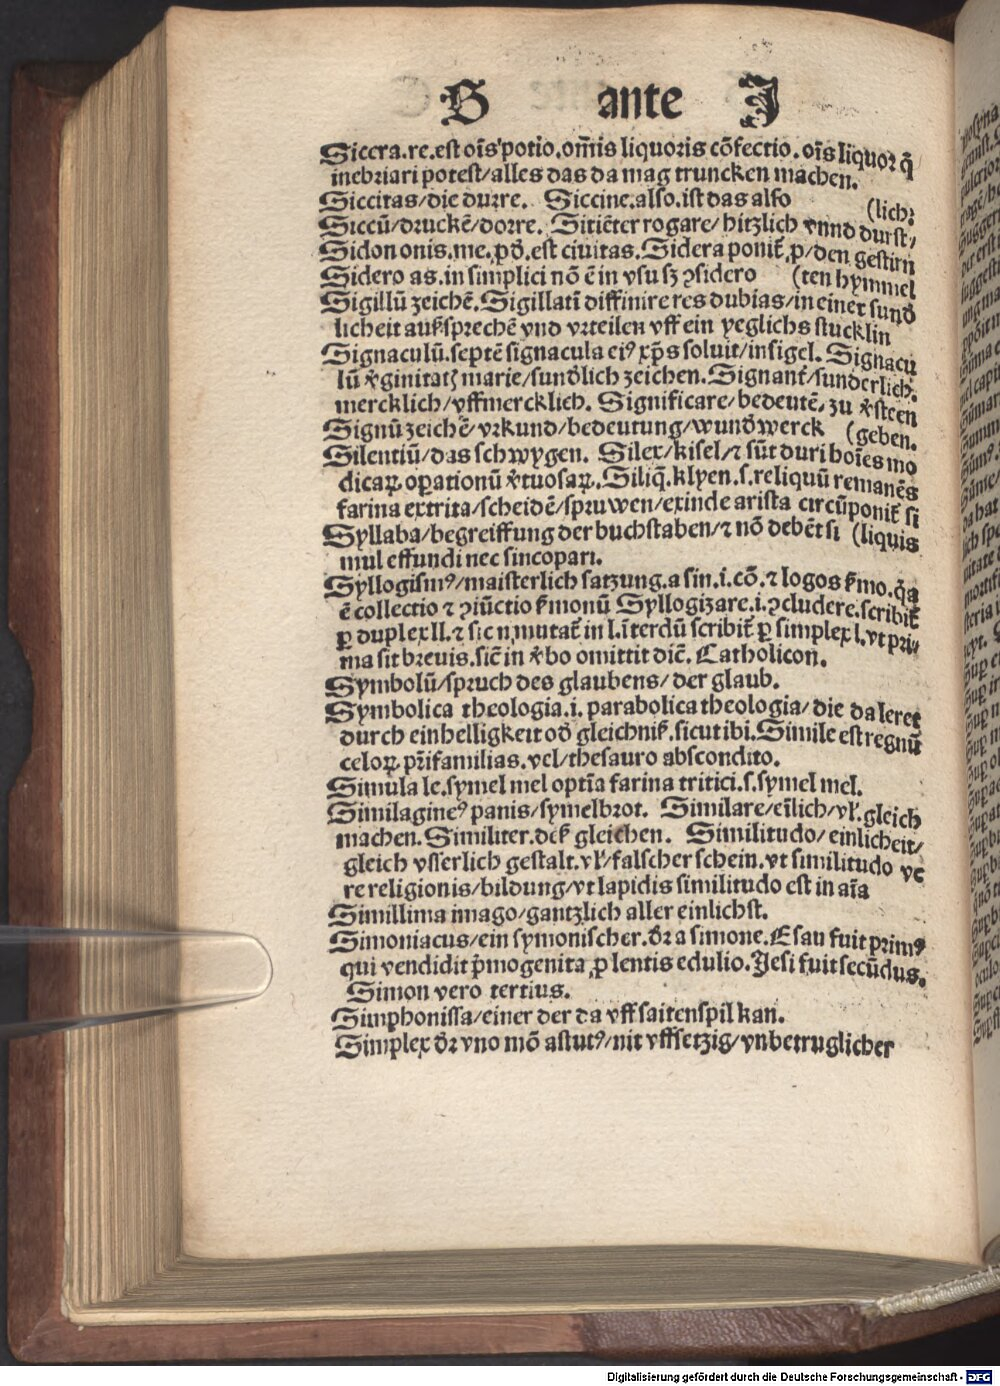 S ante J
Siccra.re.est oīs potio.om̄is liquoris cōfectio.oīs liquor q̄
inebriari potest/alles das da mag truncken machen.
Siccitas/die durre. Siccine.also.ist das also (lich;
Siccū/druckē/dorre. Sitiēter rogare/hitzlich vnnd durst/
Sidon onis.me.ꝓð.est ciuitas.Sidera ponit̄.ꝓ/den gestirn
Sidero as.in simplici nō ē in vsu sꝫ ꝯsidero (ten hymmel
Sigillū zeichē.Sigillatī diffinire res dubias/in einer sunð
licheit aufsprechē vnd vrteilen vff ein yeglichs stucklin
Signaculū.septē signacula eiꝰ xp̄s soluit/insigel. Signacu
lū v̄ginitatꝭ marie/sunðlich zeichen.Signant̄/sunderlich.
mercklich/vffmercklich. Significare/bedeutē, zu v̄steen
Signū zeichē/vrkund/bedeutung/wunðwerck (geben.
Silentiū/das schwygen. Silex/kisel/⁊ sūt duri hoīes mo
dicaꝝ oꝑationū v̄tuosaꝝ.Siliq̄.klyen.s.reliquū remanēs
farina extrita/scheidē/spruwen/exinde arista circūponit̄ si
Syllaba/begreiffung der buchstaben/⁊ nō debēt si (liquis
mul effundi nec sincopari.
Syllogismꝰ/maisterlich satzung.a sin.i.cō.⁊ logos s̄mo.q̄a
ē collectio ⁊ ꝯiūctio s̄monū Syllogizare.i.ꝯcludere.scribit̄
ꝑ duplex ll.⁊ sic n mutat̄ in l.īterdū scribit̄ ꝑ simplex l.vt pri/
ma sit breuis.sic̄ in v̄bo omittit dic̄. Catholicon.
Symbolū/spruch des glaubens/der glaub.
Symbolica theologia.i. parabolica theologia/die da leret
durch einhelligkeit oð gleichniß.sicut ibi.Simile est regnū
celoꝝ pr̄ifamilias.vel/thesauro abscondito.
Simula le.symel mel optīa farina tritici.s.symel mel.
Similagineꝰ panis/symelbrot. Similare/eīlich/vł.gleich
machen.Similiter.deß gleichen. Similitudo/einlicheit/
gleich vsserlich gestalt.vł/falscher schein.vt similitudo ve
re religionis/bildung/vt lapidis similitudo est in aīa
Simillima imago/gantzlich aller einlichst.
Simoniacus/ein symonischer.ðr a simone.Esau fuit primꝰ
qui vendidit p̄mogenita ꝓ lentis edulio.Jesi fuit secūdus.
Simon vero tertius.
Simphonissa/einer der da vff saitenspil kan.
Simplex ðr vno mō astutꝰ/nit vffsetzig/vnbetruglicher
Digitalisierung gefördert durch die Deutsche Forschungsgemeinschaft - DFG